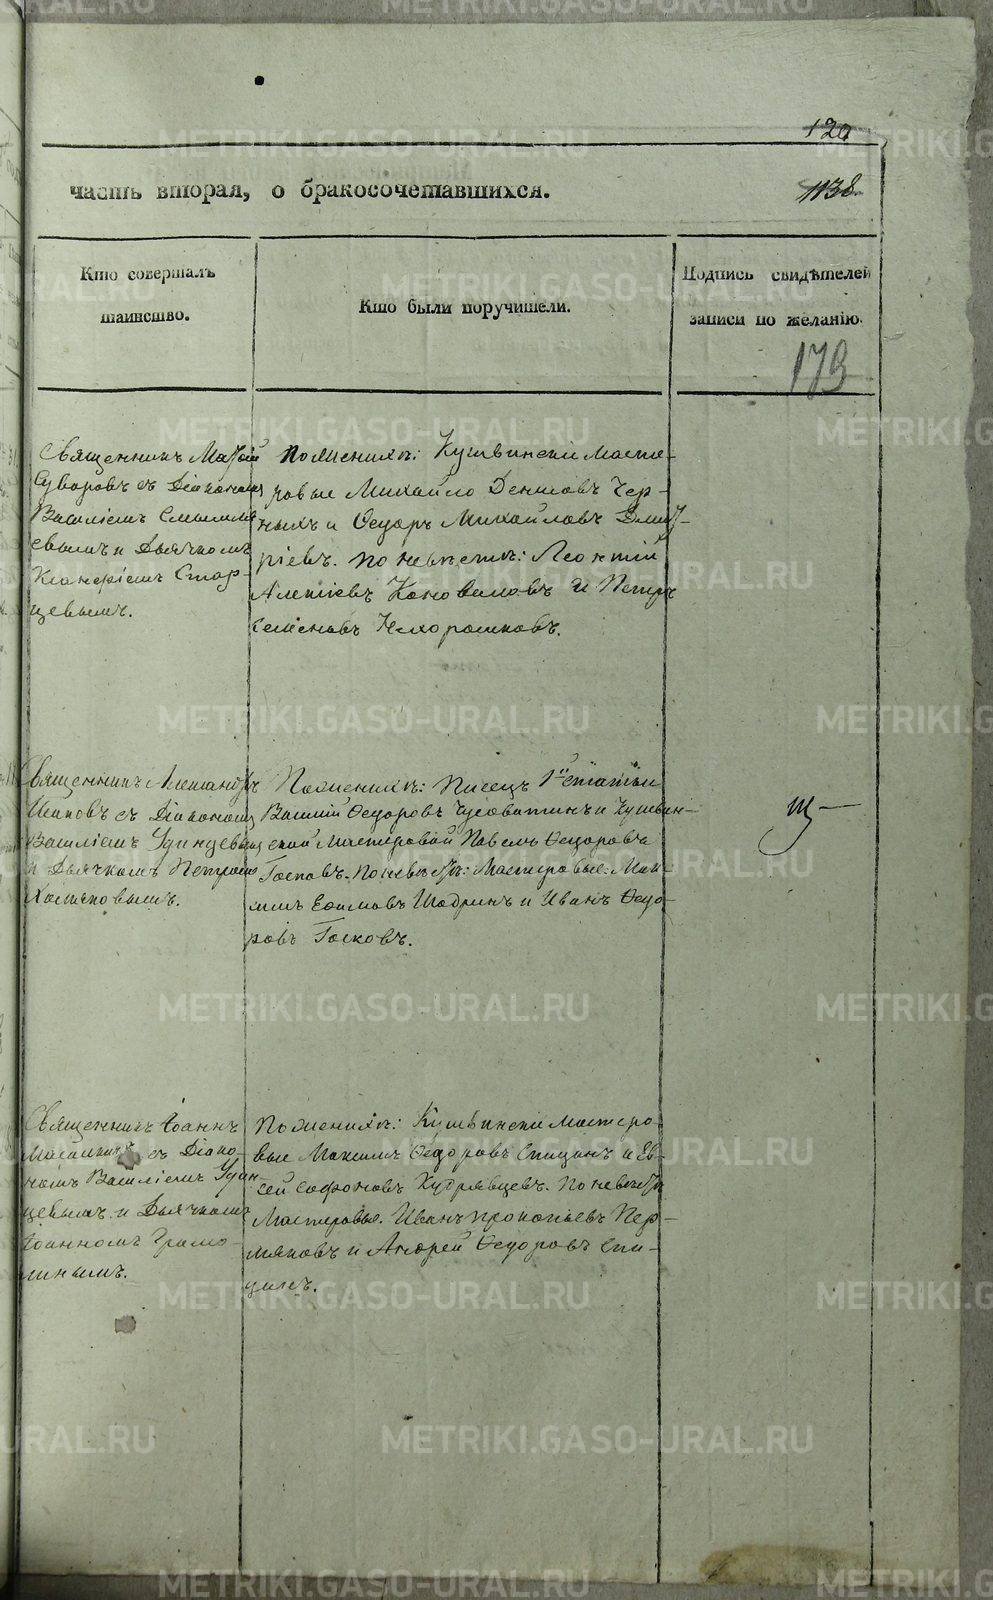 120
часть вторая, о бракосочетавшихся.
1138
Кто совершалъ
таинство.
Кто были поручители.
Подпись свидѣтелей
записи по желанію.
173
Священникъ Матѳій
Суворовъ съ Діакономъ
Василіемъ
евымъ и Дьячкомъ
Стар-
цевымъ.
По женихѣ: Кушвински масте-
ровые Михайло Денисовъ Чер-
ныхъ и Ѳедоръ Михайловъ Дмит-
ріевъ. По невѣстѣ: Леонтій
Алексіевъ Коноваловъ и Петръ
Семеновъ Нехорошковъ.
Священникъ Александръ
съ Діакономъ
Василіемъ Удинцевымъ
и Дьячкомъ Петромъ
Хомяковымъ.
По женихѣ: Писецъ 1й статьи
Василій Ѳедоровъ Чусовитинъ и Кушвин-
ской мастеровой Павелъ Ѳедоровъ
Госковъ. По невѣстѣ: Мастеровые: Мак-
симъ Ефимовъ Шадринъ и Иванъ Ѳедо-
ровъ Госковъ.
Священникъ Іоаннъ
съ Діако-
номъ Василіемъ Удин-
цевымъ и Дьячкомъ
Іоанномъ Грамо-
линымъ.
По женихѣ: Кушвински мастеро-
вые Максимъ Ѳедоровъ Спицынъ и Ев-
сей Софоновъ Кудрявцевъ. По невѣстѣ
Мастеровые: Иванъ Прокопьевъ Пер-
мяковъ и Андрей Ѳедоровъ Спи-
цынъ.
METRIKI.GASO-URAL.RU